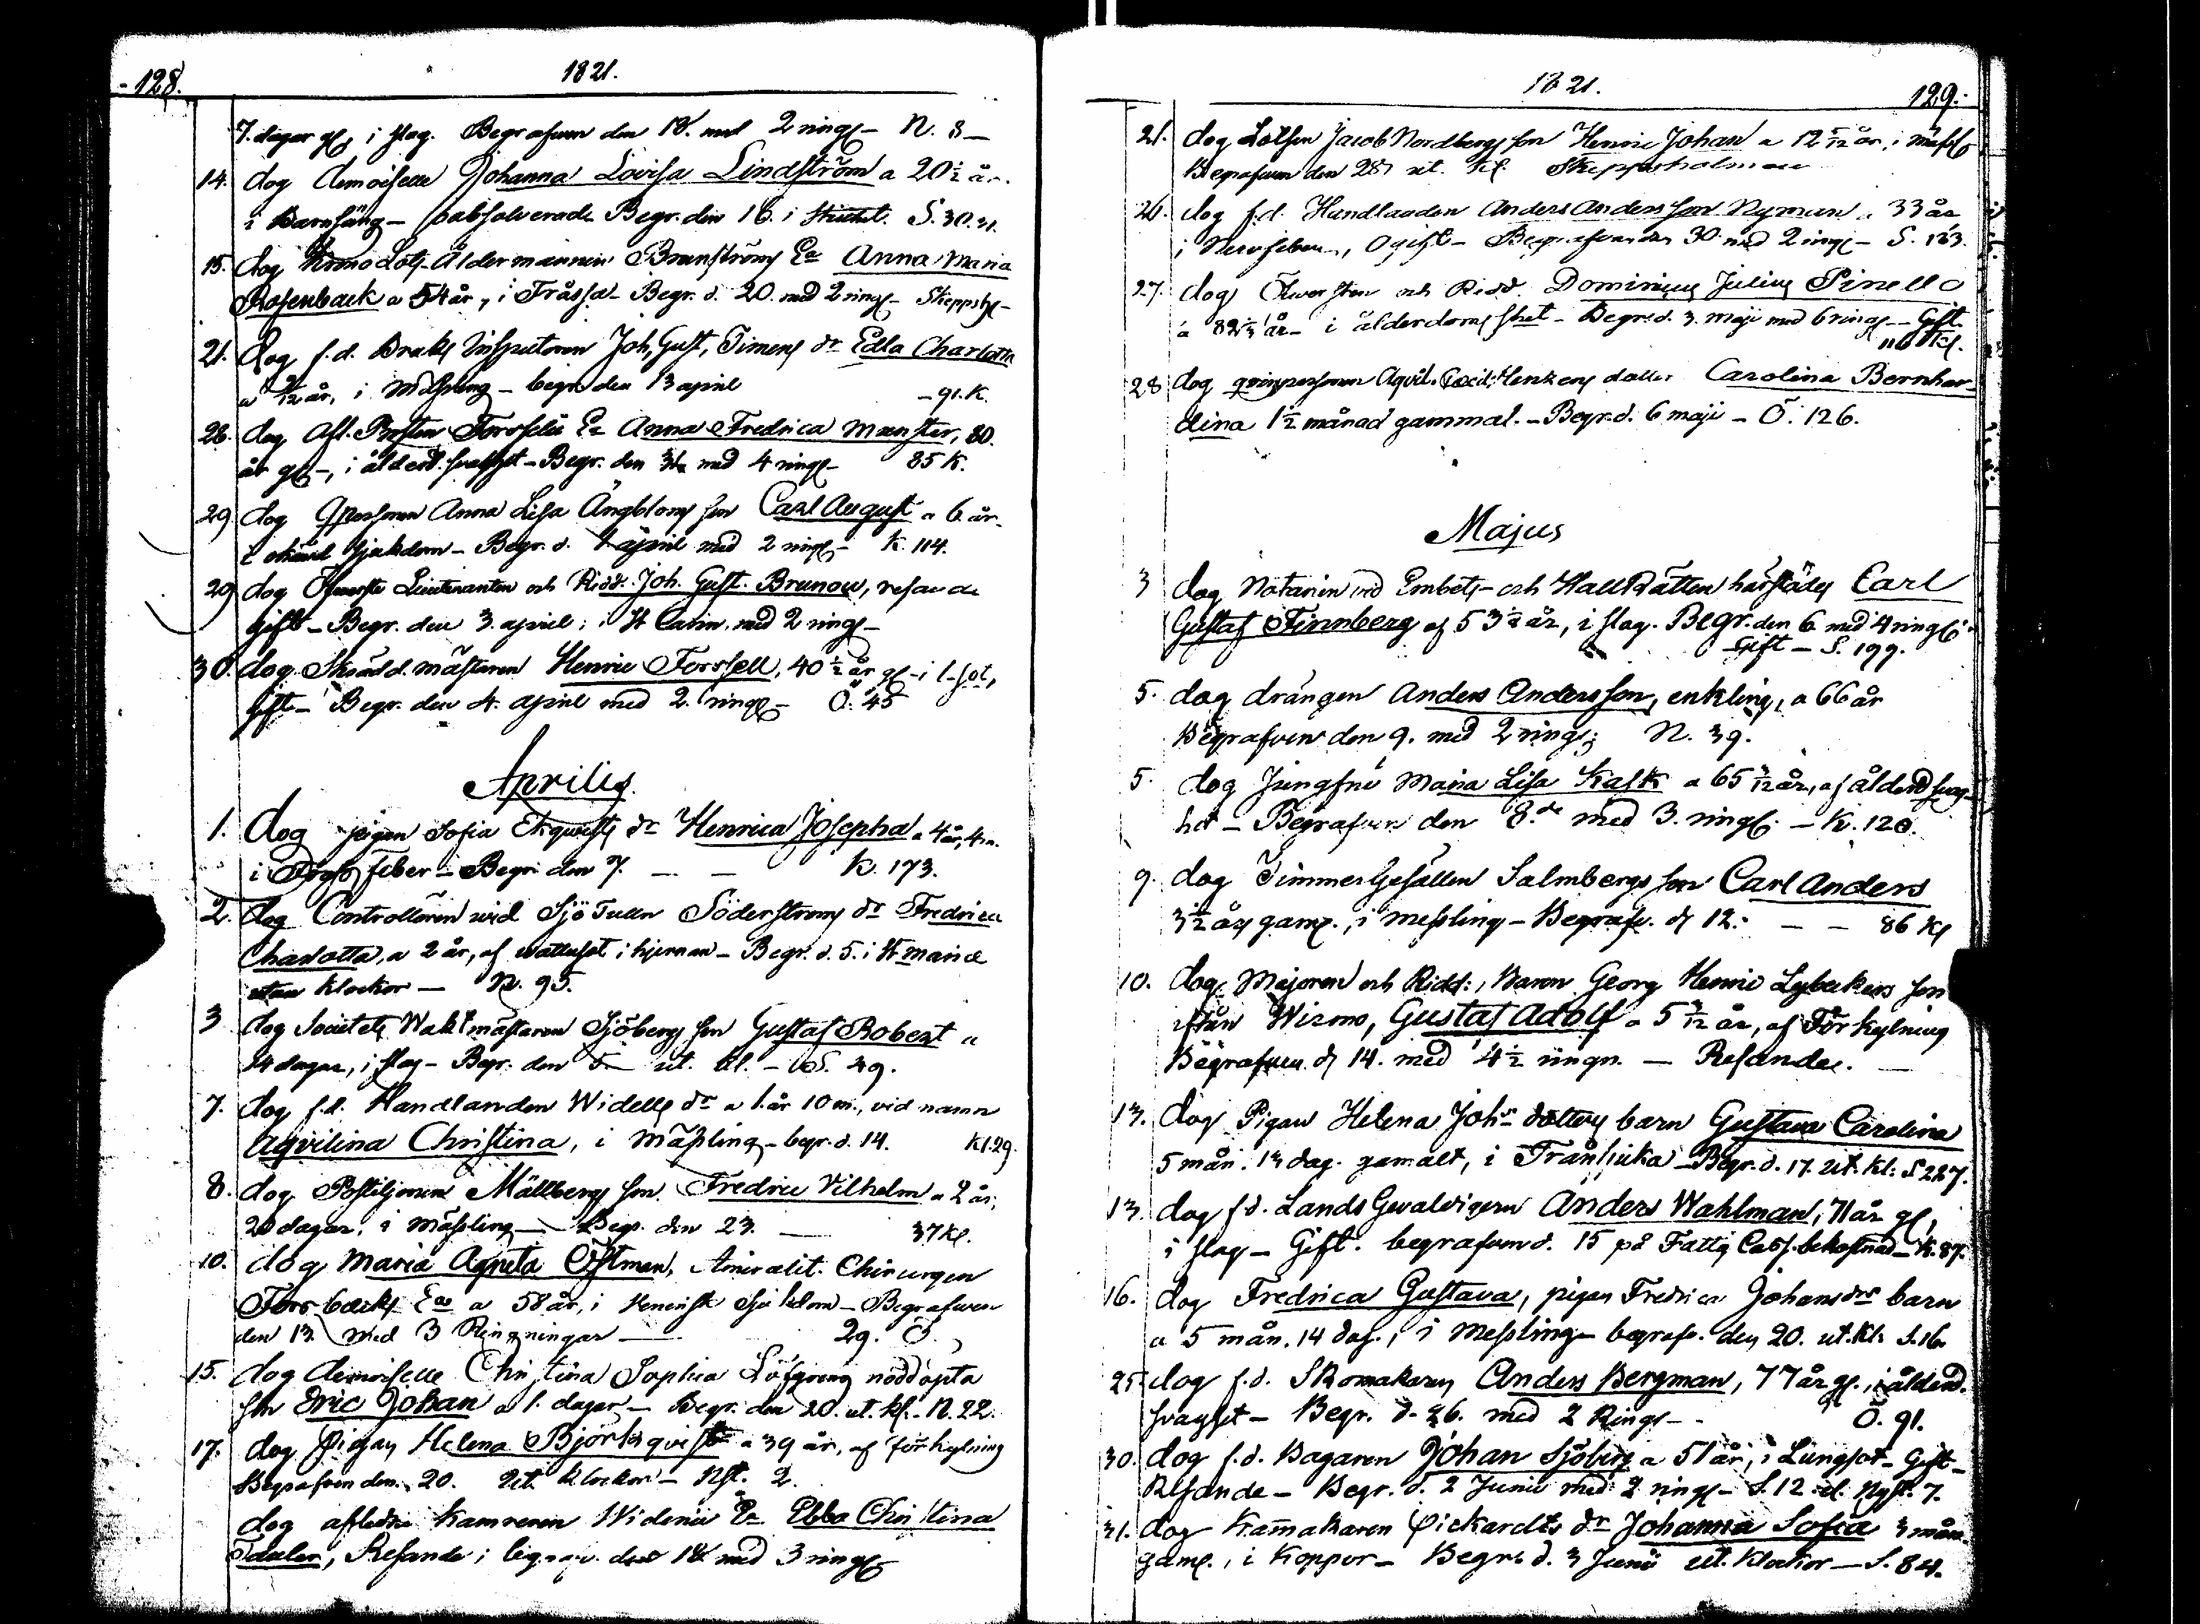 128.
1821.
7. dagar gl, i slag. Begrafven den 18. med 2 ringr N. 8
14. dog Demoiselle Johanna Lovisa Lindström a 20 1/2 år.
i Barnsäng - Begr. den 16. i S. 30.
15. dog Lots-Åldermannen Brunströms Ea Anna Maria
Rosenback a 54 år, i Fråssa - Begr. d. 20. med 2 ringr -
21. dog f.d. Bruks Inspectoren Joh, Gust, Timens dr Edla Charlotta
a år, i Mässling - begr. den 13 april - 91. K.
28. dog Afl. Ea Anna Fredrica Munster, 80.
år gl -, i ålderd. svaghet - Begr. den med 4 ringr - 85 K.
29 dog Anna Lisa Ängbloms son Carl August a 6 år.
sjukdom - Begr. d. april med 2 ringr - K. 114.
29 dog Öfverste Lieutenanten och Ridd. Joh. Gust. Brunow, resande
gift - Begr. den 3. april; i St Carin. med 2 ringr -
30. dog Skrädd. mästaren Henric Forssell, 40 1/2 år gl - i l-sot,
gift - Begr. den 4. April med 2. ringr - Ö. 45
Aprilis.
1. dog pigan Sofia Ekqvists dr Henrica Josepha a 4 år, 4 m.
i feber - Begr. den 7. - - K. 173.
2. dog Controllören wid Sjö Tullen Söderströms dr Fredrica
Charlotta, a 2 år, af wattusot i hjernan - Begr. d. 5. i St Mariæ
utan klockor - N. 95.
3 dog Societets Waktmästaren Sjöbergs son Gustaf Robert a
14 dagar, i slag - Begr. den 5 ut. kl. - S. 49.
7. dog f.d. Handlanden Widells dr a 1. år 10 m., vid namn
Aqvilina Christina, i mässling - begr. d. 14. Kl. 29.
8. dog Postiljonen Mällbergs son Fredric Vilhelm a 2 år,
20 dagar, i mässling - Begr. den 23. - 37 kl.
10. dog Maria Agneta Östman, Amiralit. Chirurgen
Forsbacks Ea a 58 år, i Venerisk sjukdom - Begrafven
den 13. med 3 Ringningar - 29. Ö.
15. dog demoiselle Christina Sophia Löfgrens nöddöpta
son Eric Johan a 1. dagar - Begr. den 20. ut. kl. - N. 22.
17. dog Pigan Helena Björkqvist a 39 år, af förkylning
Begrafven den 20. ut. klockor - Nst. 2.
dog afledne Kamreren Widenii Ea Ebba Christina
Tauler, Resande; begrav. den 18. med 3 ringr
1821.
129.
21. dog Lotsen Jacob Nordbergs son Henric Johan a 12 år, i mässl
Begrafven den 28. ut. kl. Skeppsholmen
26. dog f.d. Handlanden Anders Andersson Nyman a 33 år
i Nervfeber, Ogift - Begrafven den 30. med 2 ringr - S. 133.
27. dog Öwersten och Ridd. Dominicus Julius Pinello
a år - i ålderdomsswhet - Begr. d. 3. maji med 6 ringr - Gift
116 Kl.
28 dog Aqvil. Cæcil. Henkens dotter Carolina Bernhar-
dina 1 1/2 månad gammal. - Begr. d. 6 maji - Ö. 126.
Majus
3 dog Notarien vid Embets- och HallRätten härstädes Carl
Gustaf Finnberg af 53 1/2 år, i slag. Begr. den 6. med 4 ringr
Gift - S. 199.
5. dog drängen Anders Andersson, enkling, a 66 år
Begrafven den 9. med 2 ringr; N. 39.
5. dog Jungfru Maria Lisa Kask a 65 år, af ålderdsvag-
het - Begrafven den 8.de med 3. ringr. - K. 120.
9. dog Timmer Gesällen Salmbergs son Carl Anders
3 1/2 års gaml., i messling - Begrafv. d. 12. - - 86 Kl
10. dog Majoren och Ridd., Baron Georg Henric Lybeckers son
ifrån Wirmo, Gustaf Adolf a 5 år, af Förkylning
Begrafven d. 14. med 4 1/2 ringn. - Resande.
13. dog Pigan Helena Johsdotters barn Gustava Carolina
5 mån. 13 dag. gamalt, i Trånsjuka - Begr. d. 17. ut. kl. S 227.
13. dog f.d. Lands Gevaldigern Anders Wahlman, 71 år gl,
i slag - Gift. begrafven d. 15 på Fattig Cass. bekostnad - K. 87.
16. dog Fredrica Gustava, pigan Fredrica Johansdrs barn
a 5 mån. 14 dag., i messling - begrafv. den 20. ut. kl. S. 16.
25. dog f.d. Skomakaren Anders Bergman, 77 år gl., i ålderd.
svaghet - Begr. d. 26. med 2 Ringr - - Ö. 91.
30. dog f.d. Bagaren Johan Sjöberg a 51 år, i Lungsot - Gift -
Resande - Begr. d. 2 Junii med 2 ringr - S. 12 el. Nyst. 7.
31. dog Kammakaren Pickardts dr Johanna Sofia 3 mån.
gaml., i Koppor - Begr. d. 3 Junii ut. klockor - S. 84.